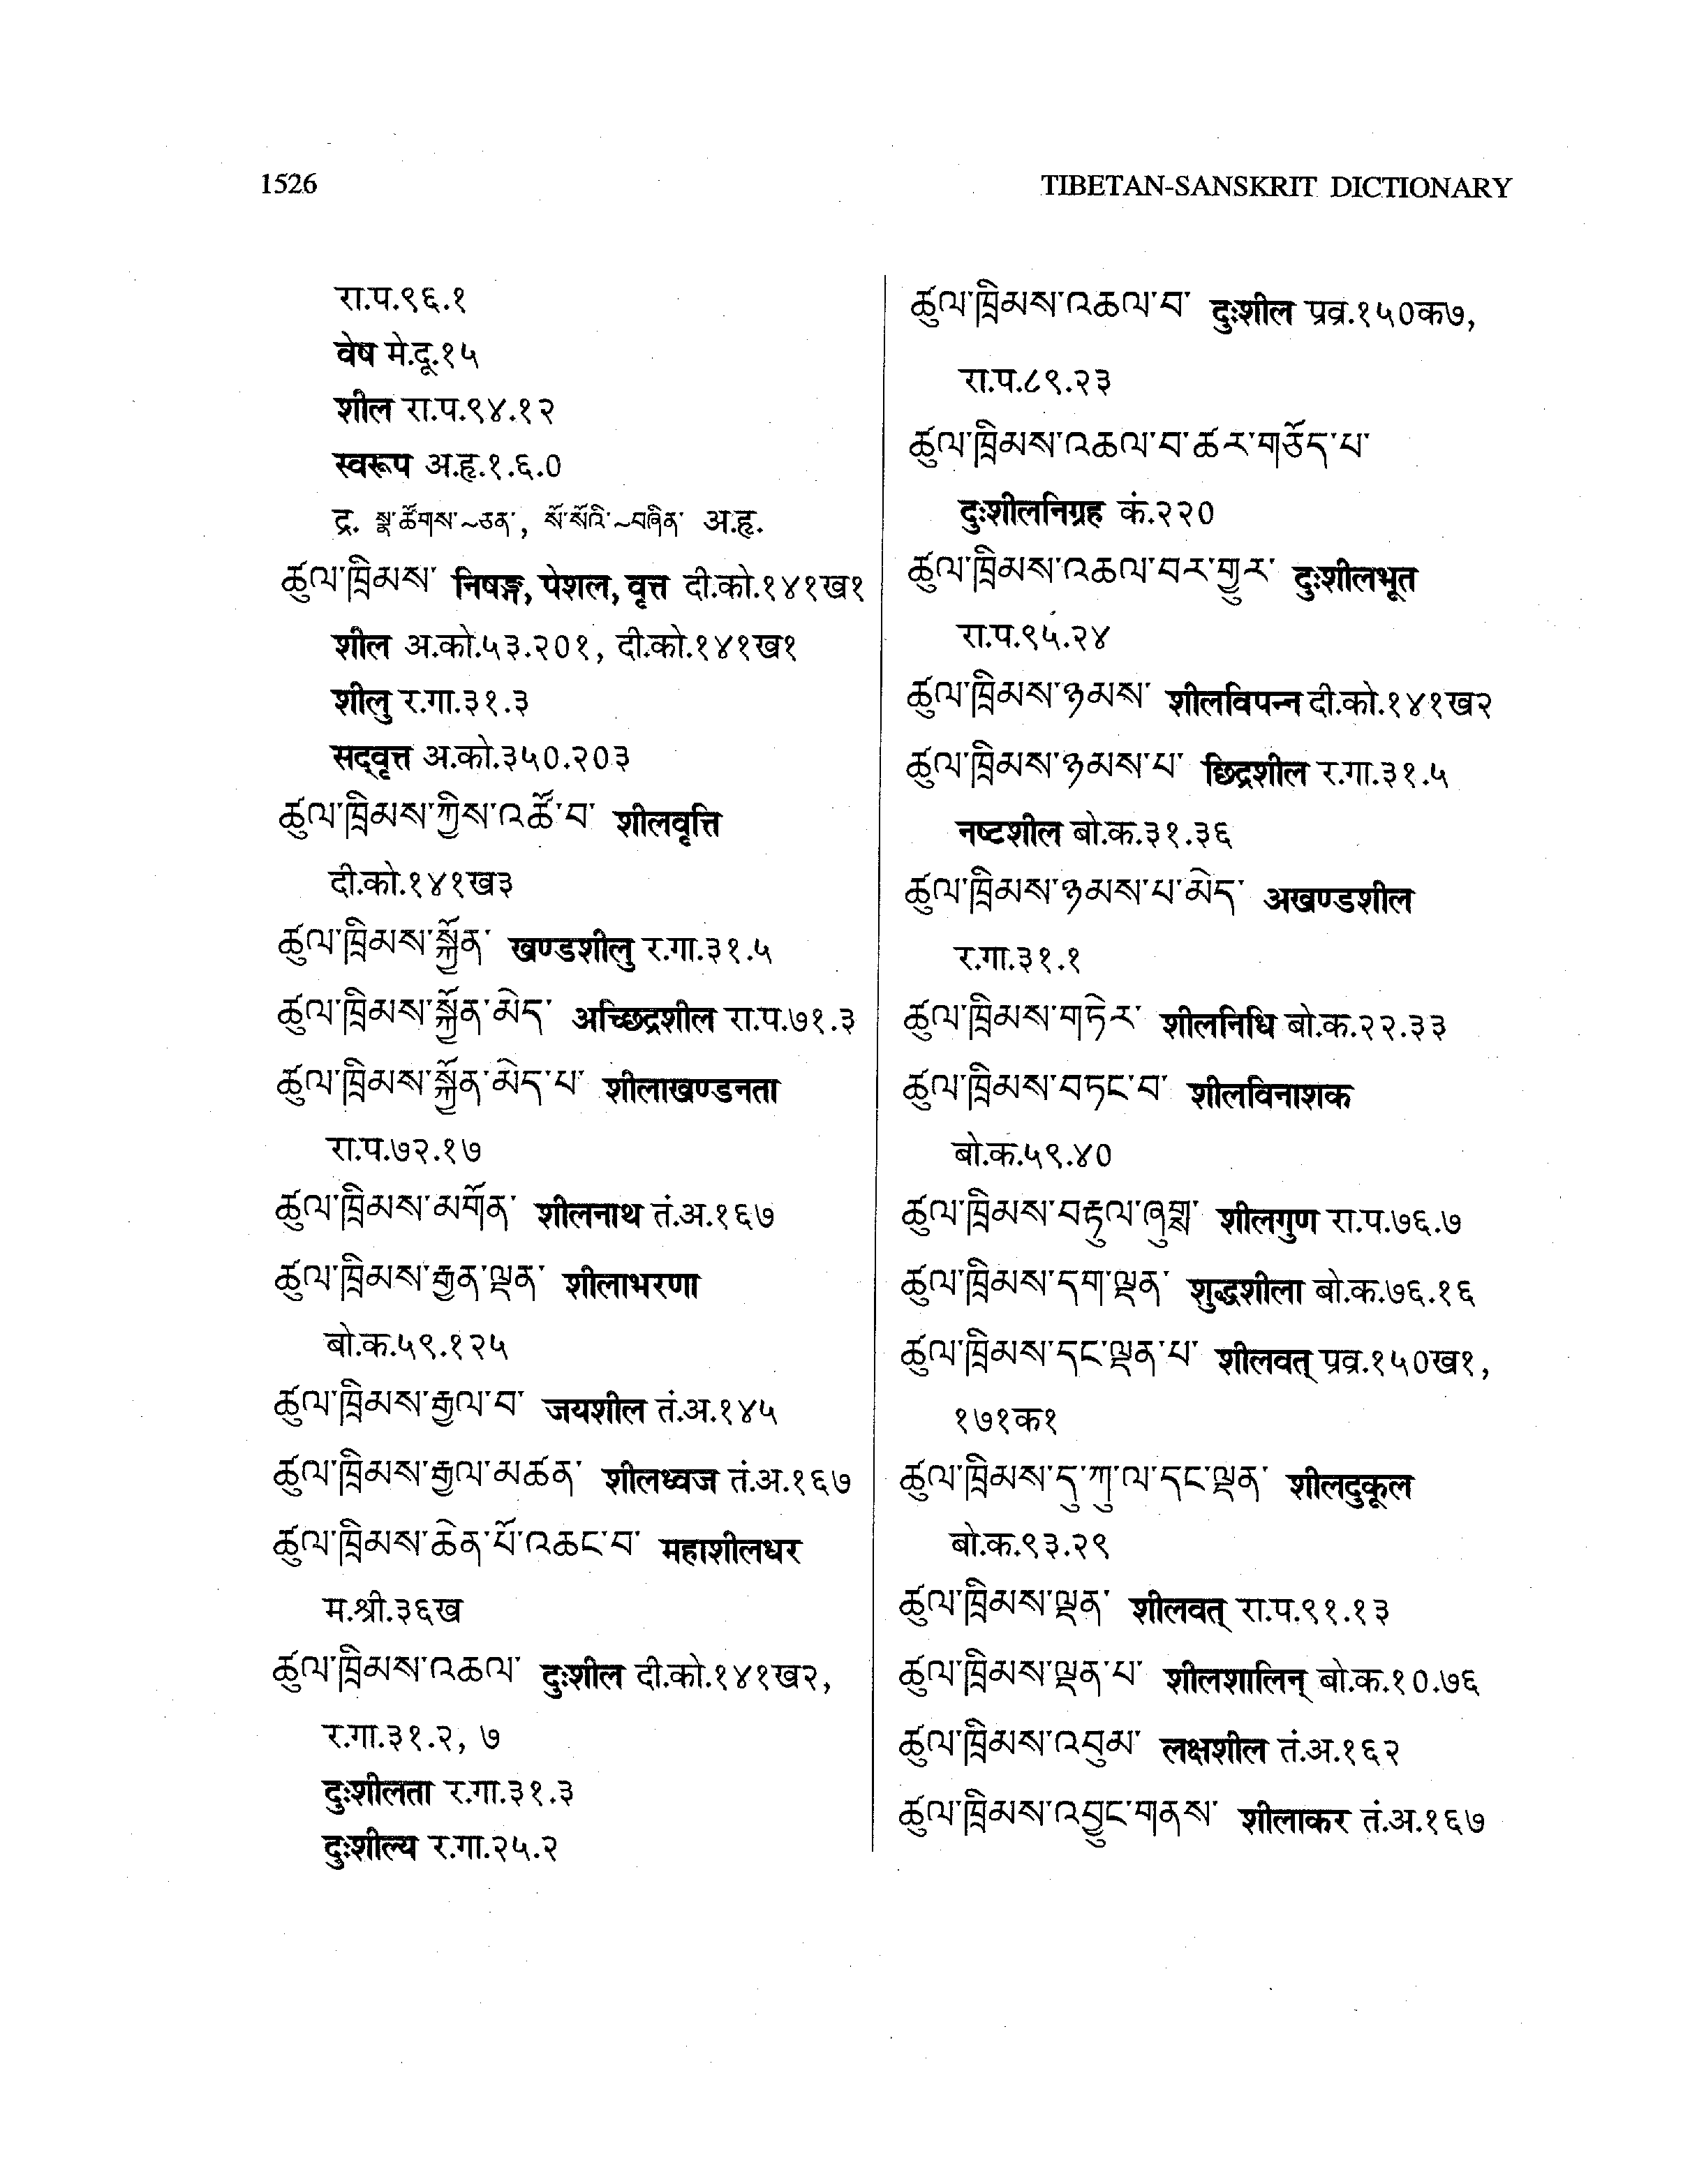 1526
TIBETAN-SANSKRIT DICTIONARY
रा.प.९६.१
वेष मे.दू.१५
शील रा.प.९४.१२
स्वरूप अ.हृ.१.६.0
द्र. སྣ་ཚོགས་~ཅན་, སོ་སོའི་~བཞིན་ अ.हृ.
ཚུལ་ཁྲིམས་ निषङ्ग, पेशल, वृत्त दी.को.१४१ख१
शील अ.को.५३.२०१, दी.को.१४१ख१
शीलु र.गा.३१.३
सद्वृत्त अ.को.३५०.२०३
ཚུལ་ཁྲིམས་ཀྱིས་འཚོ་བ་ शीलवृत्ति
दी.को.१४१ख३
ཚུལ་ཁྲིམས་སྐྱོན་ खण्डशीलु र.गा.३१.५
ཚུལ་ཁྲིམས་སྐྱོན་མེད་ अच्छिद्रशील रा.प.७१.३
ཚུལ་ཁྲིམས་སྐྱོན་མེད་པ་ शीलाखण्डनता
रा.प.७२.१७
ཚུལ་ཁྲིམས་མགོན་ शीलनाथ तं.अ.१६७
ཚུལ་ཁྲིམས་རྒྱན་ལྡན་ शीलाभरणा
बो.क.५९.१२५
ཚུལ་ཁྲིམས་རྒྱལ་བ་ जयशील तं.अ.१४५
ཚུལ་ཁྲིམས་རྒྱལ་མཚན་ शीलध्वज तं.अ.१६७
ཚུལ་ཁྲིམས་ཆེན་པོ་འཆང་བ་ महाशीलधर
म.श्री.३६ख
ཚུལ་ཁྲིམས་འཆལ་ दुःशील दी.को.१४१ख२,
र.गा.३१.२, ७
दुःशीलता र.गा.३१.३
दुःशील्य र.गा.२५.२
ཚུལ་ཁྲིམས་འཆལ་བ་ दुःशील प्रव्र.१५०क७,
रा.प.८९.२३
ཚུལ་ཁྲིམས་འཆལ་བ་ཚར་གཅོད་པ་
दुःशीलनिग्रह कं.२२०
ཚུལ་ཁྲིམས་འཆལ་བར་གྱུར་ दुःशीलभूत
रा.प.९५.२४
ཚུལ་ཁྲིམས་ཉམས་ शीलविपन्न दी.को.१४१ख२
ཚུལ་ཁྲིམས་ཉམས་པ་ छिद्रशील र.गा.३१.५
नष्टशील बो.क.३१.३६
ཚུལ་ཁྲིམས་ཉམས་པ་མེད་ अखण्डशील
र.गा.३१.१
ཚུལ་ཁྲིམས་གཏེར་ शीलनिधि बो.क.२२.३३
ཚུལ་ཁྲིམས་བཏང་བ་ शीलविनाशक
बो.क.५९.४०
ཚུལ་ཁྲིམས་བརྟུལ་ཞུགས་ शीलगुण रा.प.७६.७
ཚུལ་ཁྲིམས་དག་ལྡན་ शुद्धशीला बो.क.७६.१६
ཚུལ་ཁྲིམས་དང་ལྡན་པ་ शीलवत् प्रव्र.१५०ख१,
१७१क१
ཚུལ་ཁྲིམས་དུ་ཀུ་ལ་དང་ལྡན་ शीलदुकूल
बो.क.९३.२९
ཚུལ་ཁྲིམས་ལྡན་ शीलवत् रा.प.९१.१३
ཚུལ་ཁྲིམས་ལྡན་པ་ शीलशालिन् बो.क.१०.७६
ཚུལ་ཁྲིམས་འབུམ་ लक्षशील तं.अ.१६२
ཚུལ་ཁྲིམས་འབྱུང་གནས་ शीलाकर तं.अ.१६७